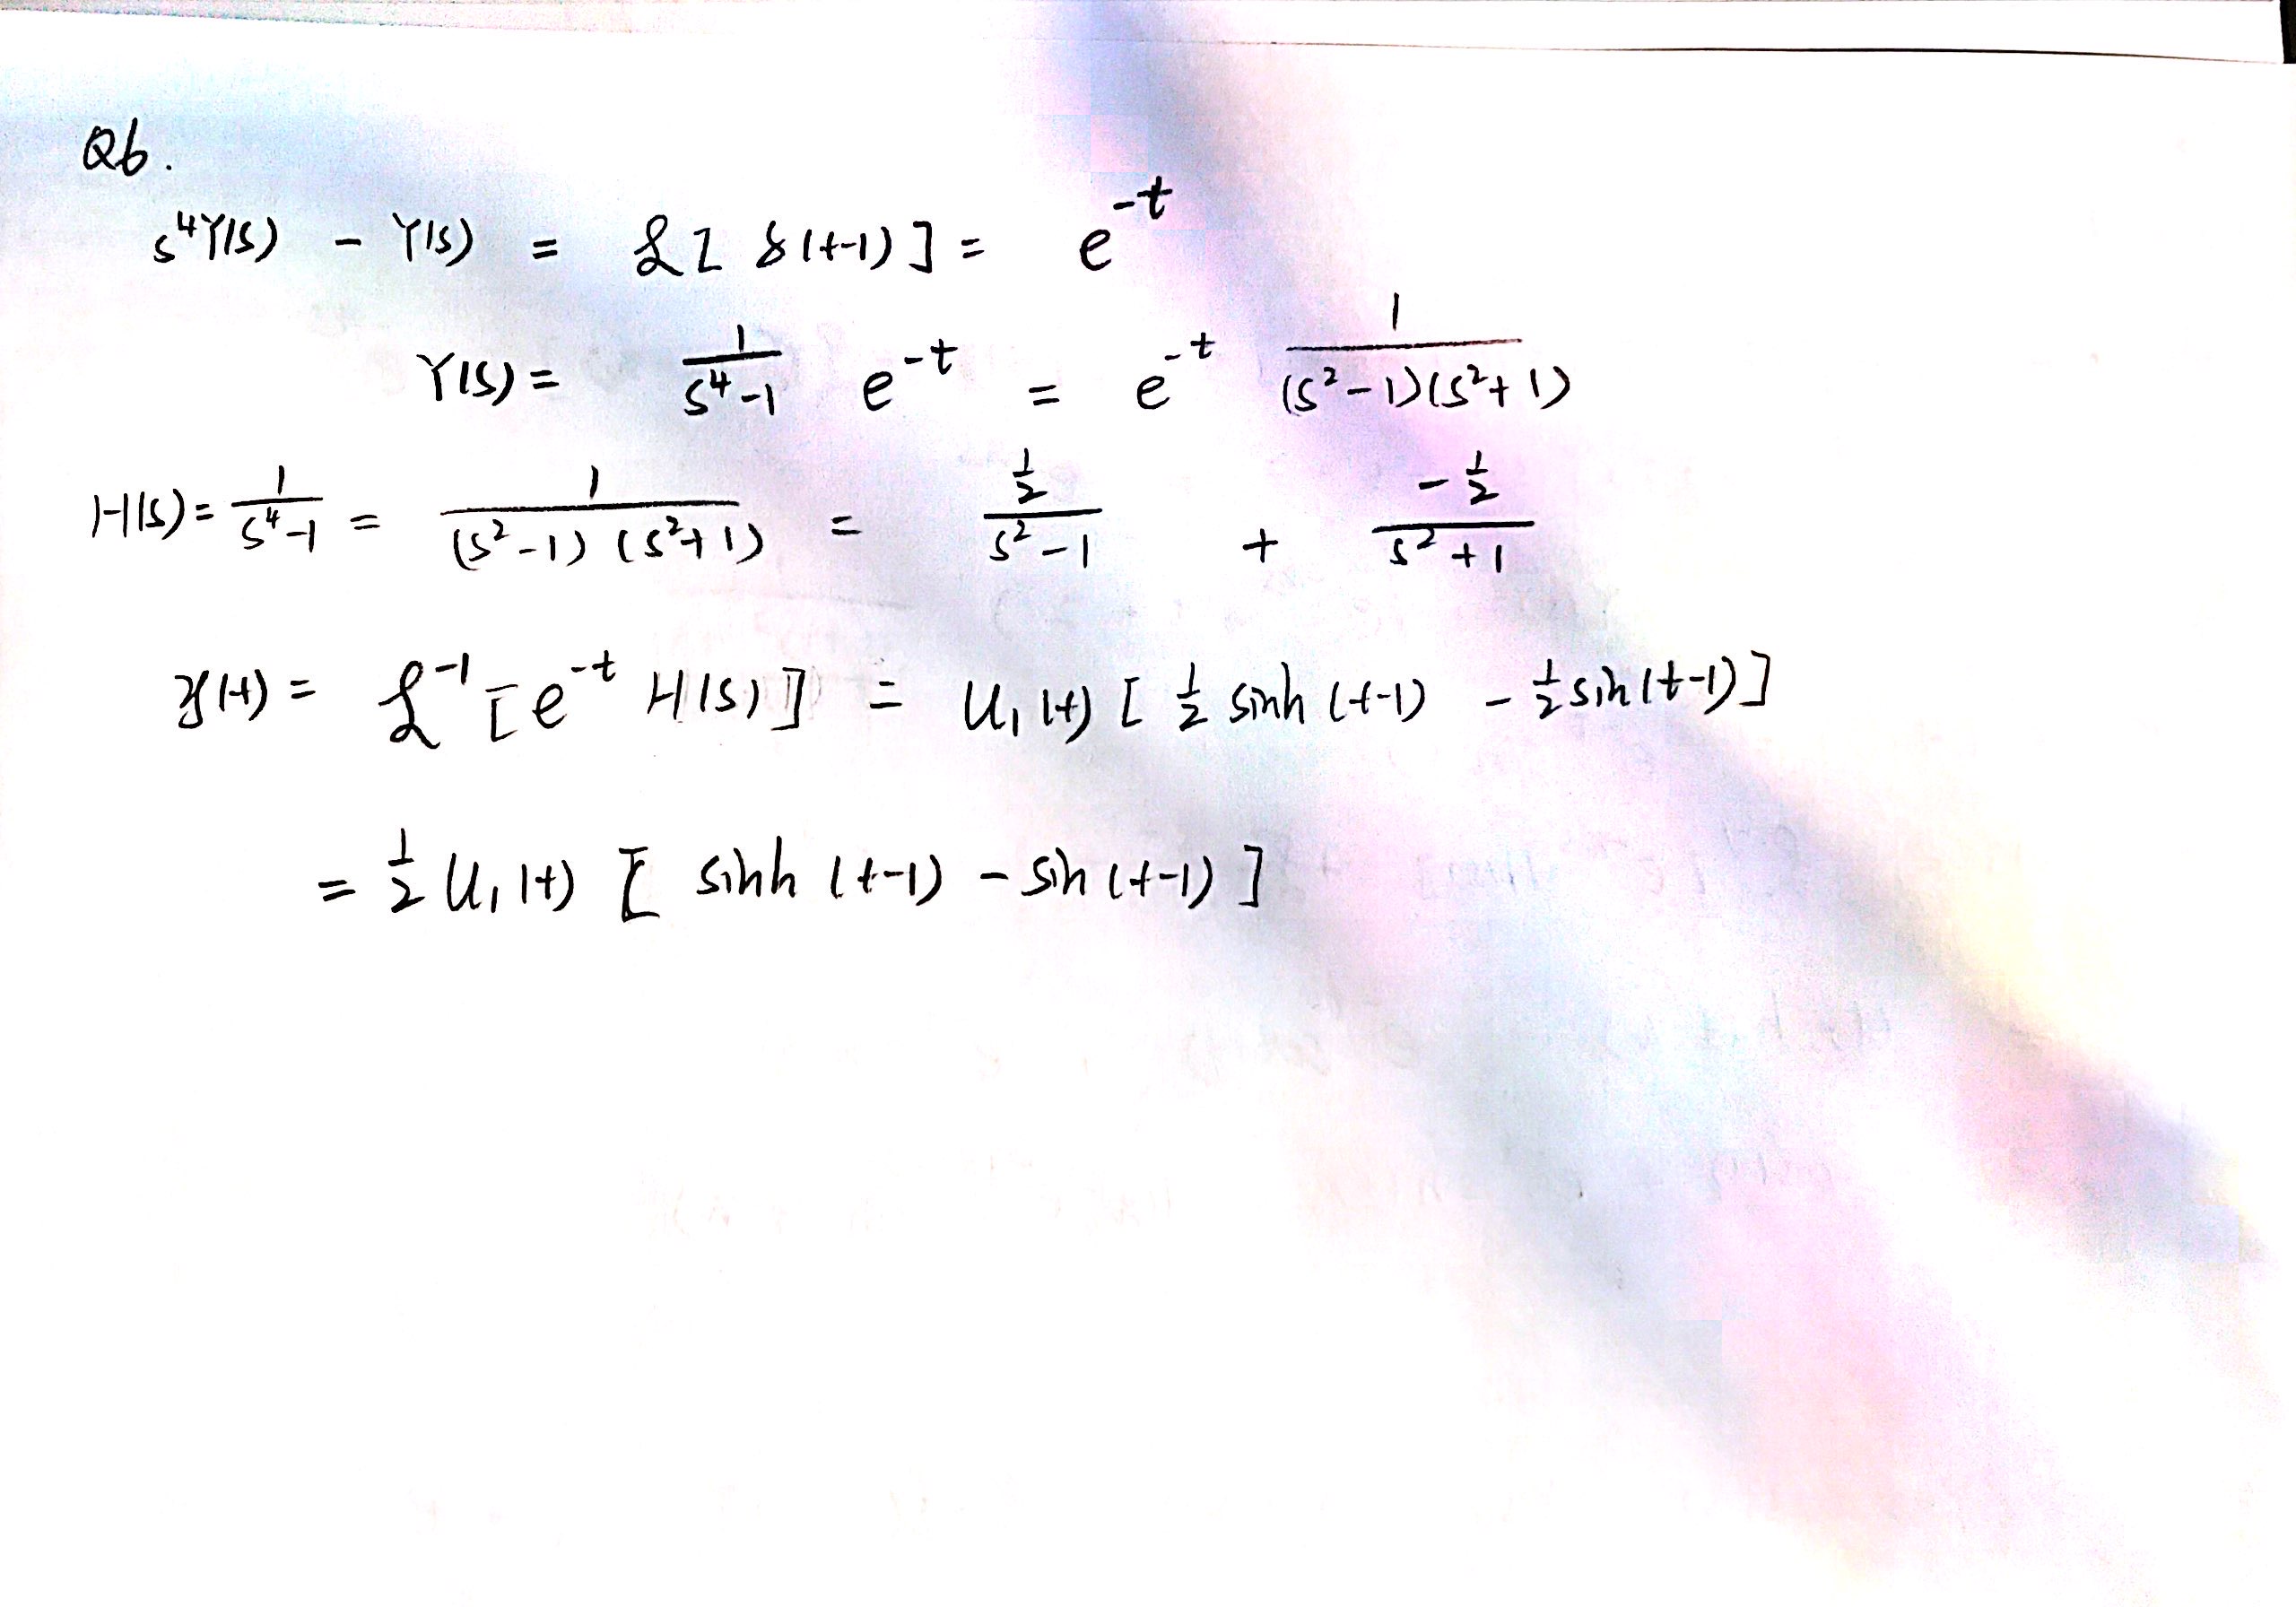 Q6.
s⁴Y(s) - Y(s) = ℒ[δ(t-1)] = e^{-t}
Y(s) = \frac{1}{s⁴-1} e^{-t} = e^{-t} \frac{1}{(s²-1)(s²+1)}
H(s) = \frac{1}{s⁴-1} = \frac{1}{(s²-1)(s²+1)} = \frac{\frac{1}{2}}{s²-1} + \frac{-\frac{1}{2}}{s²+1}
y(t) = ℒ^{-1}[e^{-t} H(s)] = u₁(t)[\frac{1}{2} sinh(t-1) - \frac{1}{2} sin(t-1)]
= \frac{1}{2} u₁(t)[sinh(t-1) - sin(t-1)]